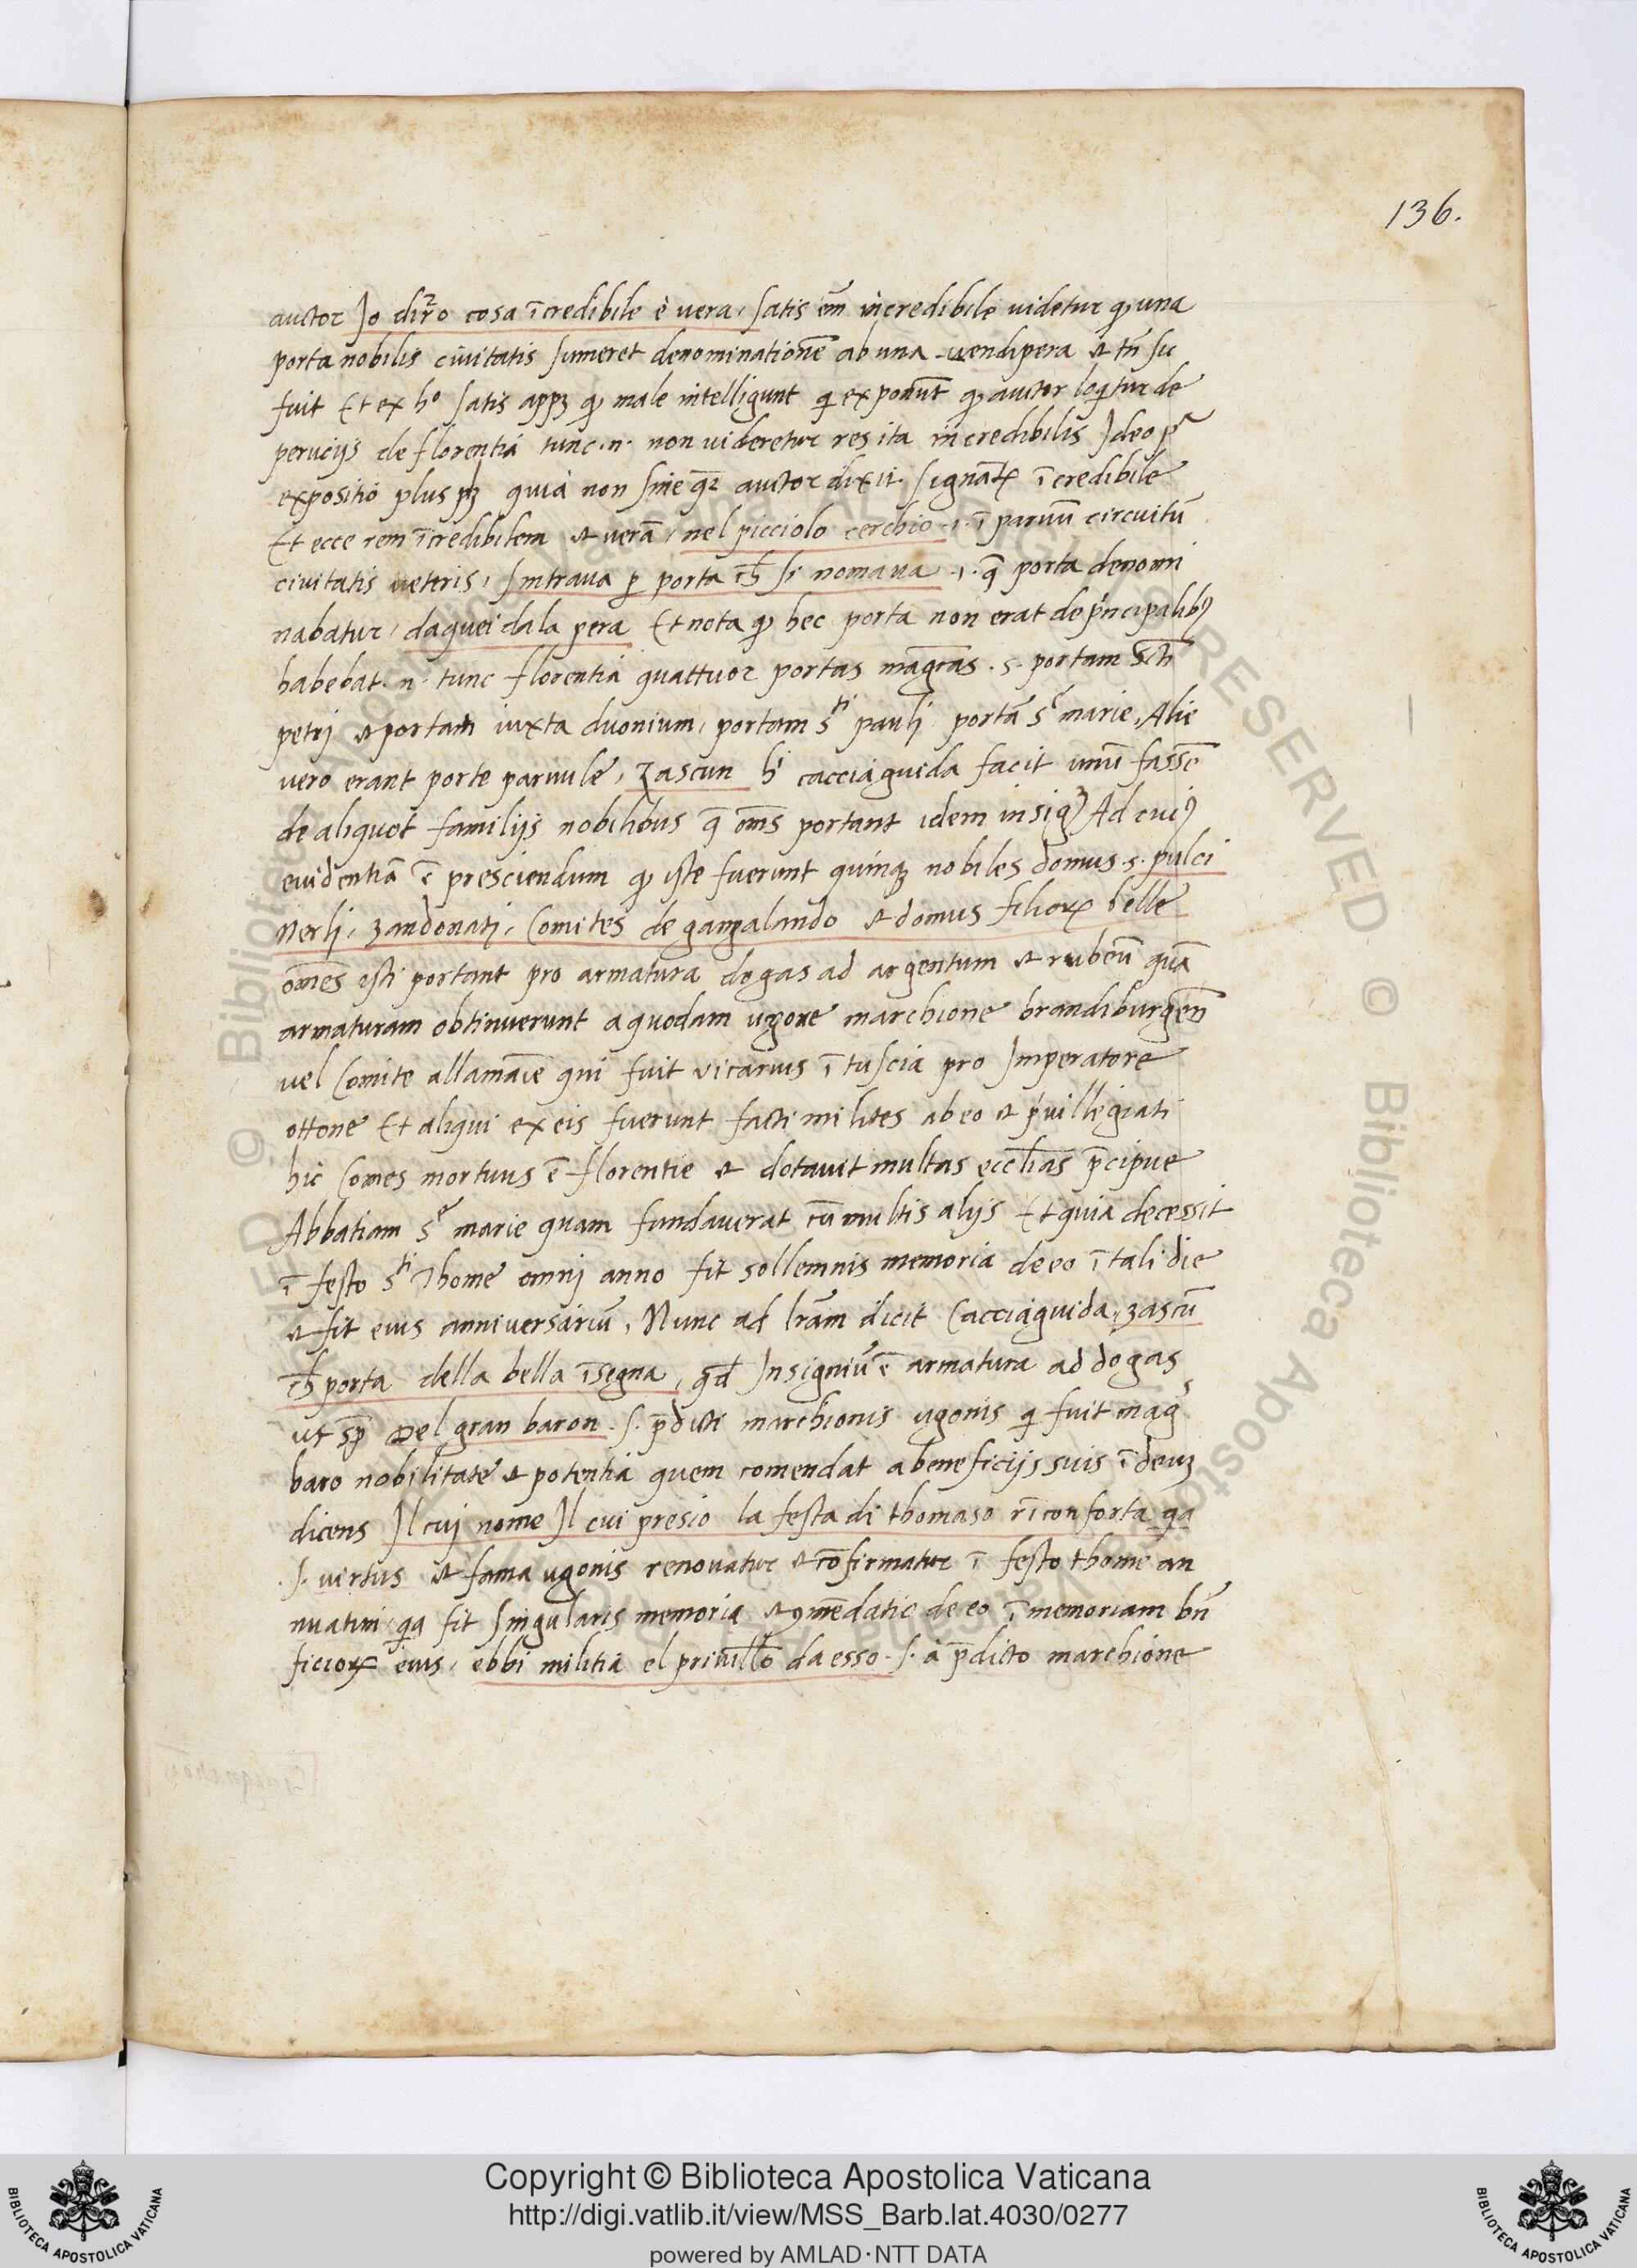 136.
auctor Jo dirro cosa ĩcredibile è vera, satis em̃ incredibile videtur qđ una
porta nobilis civitatis sumeret denominationẽ ab una vendipera et tñ sic
fuit Et ex hº satis appȝ qđ male intelligunt qi exponũt qđ auctor loqitur de
peruciis de florentia tunc .n. non videretur res ita incredibilis Ideo pª
expositio plus pȝ quia non sine qȝ auctor dixit signãtꝝ ĩcredibile
Et ecce rem ĩcredibilem et verã, nel picciolo cerchio .i. ĩ parvũ circuitũ
civitatis veteris, Sintrava p̱ porta ch̃ si nomava .i. q̃ porta denomi
nabatur, daquei dala pera Et nota qđ hec porta non erat de pⁱncipalibꝰ
habebat .n. tunc florentia quattuor portas mag̃ras .s. portam Scti
petri et portam iuxta duonium, portam sti pauli portã se marie, Alie
vero erant porte parvule, zascun hⁱ cacciaguida facit unũ fassẽ
de aliquot familijs nobilibus q̃ oms̃ portant idem insigꝫ Ad cuiꝰ
evidentiã ẽ presciendum qđ iste fuerunt quinqȝ nobiles domus .s. pulci
Nerli, zandonati, Comites de gangalando et domus filioꝝ belle
om̃es isti portant pro armatura dogas ad argentum et rubeũ quã
armaturam obtinuerunt a quodam ugone marchione brandiburgeñ
vel Comite allamãie qui fuit vicarius ĩ tuscia pro Imperatore
ottone Et aliqui ex eis fuerunt facti milites ab eo et pⁱvillegiati
hic Comes mortuus ẽ florentie et dotavit multas eccl̃ias p̃cipue
Abbatiam se marie quam fundaverat cũ multis aliis Et quia decessit
ĩ festo sti Thome omni anno fit sollemnis memoria de eo ĩ tali die
et fit eius anniversariũ, Nunc ad lr̃am dicit Cacciaguida, zascũ
ch̃ porta della bella ĩsegna, qđ Insigniũ ẽ armatura ad dogas
ut sp̃ Del gran baron .s. p̃dicti marchionis ugonis qi fuit magˢ
baro nobilitate et potentia quem comendat a beneficijs suis ĩ deuȝ
dicens Il cui nome Il cui presio la festa di thomaso rĩconforta qa
.s. vertus et fama ugonis renovatur et cõfirmatur ĩ festo thome an
nuatim qa fit singularis memoria et ꝯmẽdatio de eo ĩ memoriam bñ
ficioꝝ eius, ebbi militia el privill̃o da esso .s. à p̃dicto marchione
Copyright © Biblioteca Apostolica Vaticana
http://digi.vatlib.it/view/MSS_Barb.lat.4030/0277
powered by AMLAD·NTT DATA
BIBLIOTECA APOSTOLICA VATICANA
BIBLIOTECA APOSTOLICA VATICANA